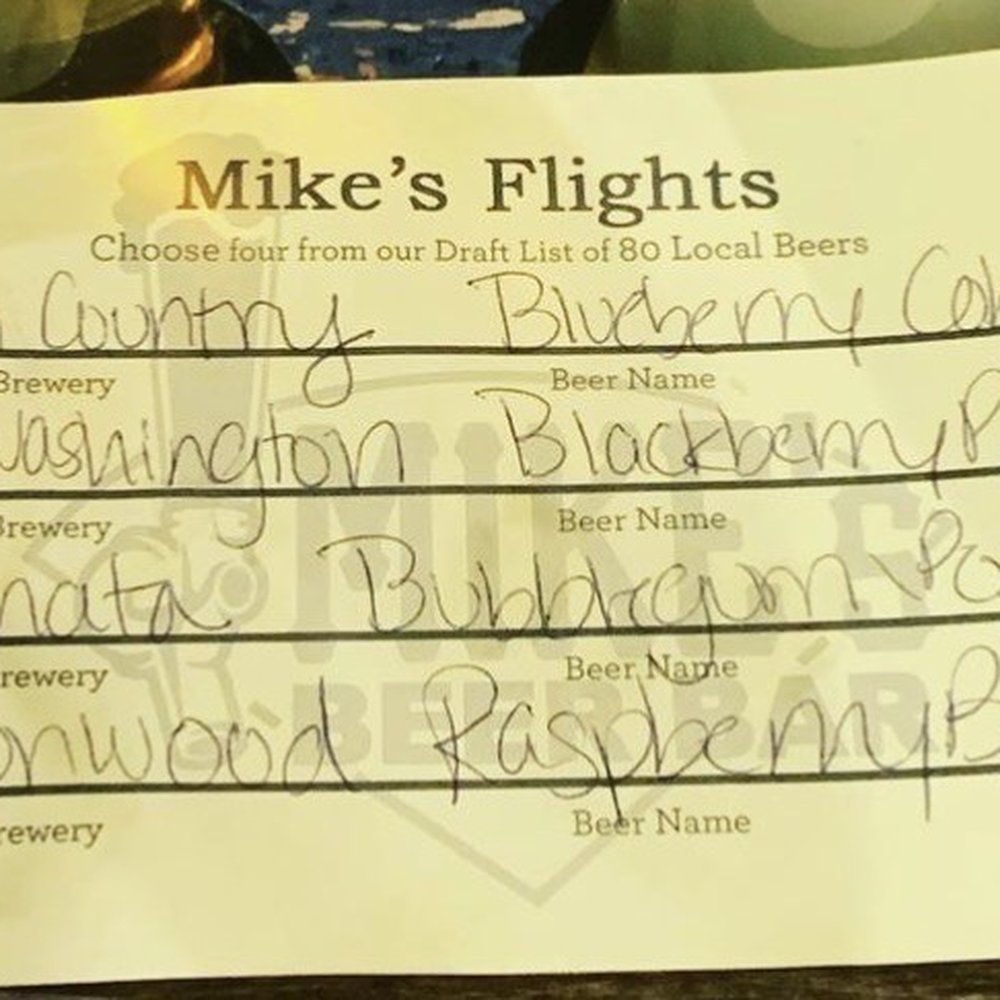 Mike's Flights
Choose four from our Draft List of 80 Local Beers
Country Blueberry
Brewery Beer Name
Washington Blackberry
Brewery Beer Name
Bubblegum
Brewery Beer Name
Raspberry
Brewery Beer Name
MIKE'S
BEER BAR